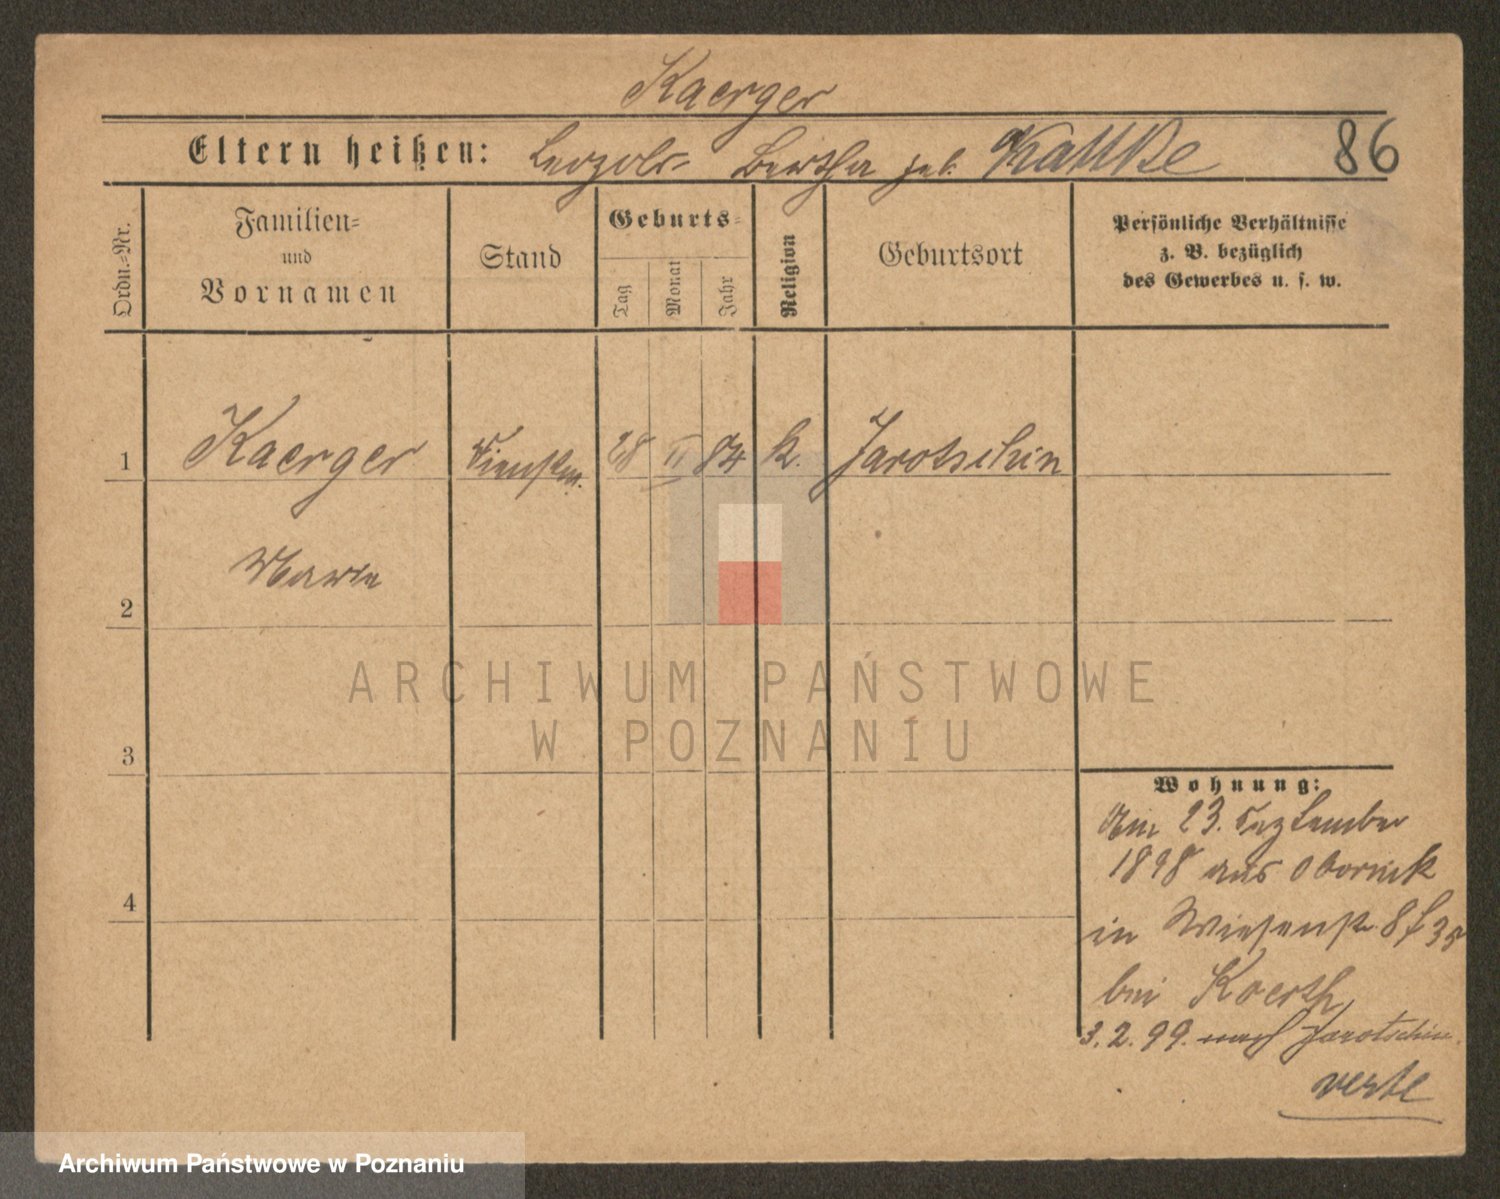 Kaerger
Eltern heißen: Leopold Bertha geb. Kattke 86
Ordn.-Nr.
Familien-
und
Vornamen
Stand
Geburts-
Tag
Monat
Jahr
Religion
Geburtsort
Persönliche Verhältnisse
z. B. bezüglich
des Gewerbes u. s. w.
1 Kaerger Dienstm. 28 II 84 k. Jarotschin
Marie
2
3
4
ARCHIWUM PAŃSTWOWE
W POZNANIU
Wohnung:
Am 23. September
1898 aus Obornik
in Wiesenstr. 8
bei Koerth
3.2.99. nach Jarotschin.
verte
Archiwum Państwowe w Poznaniu